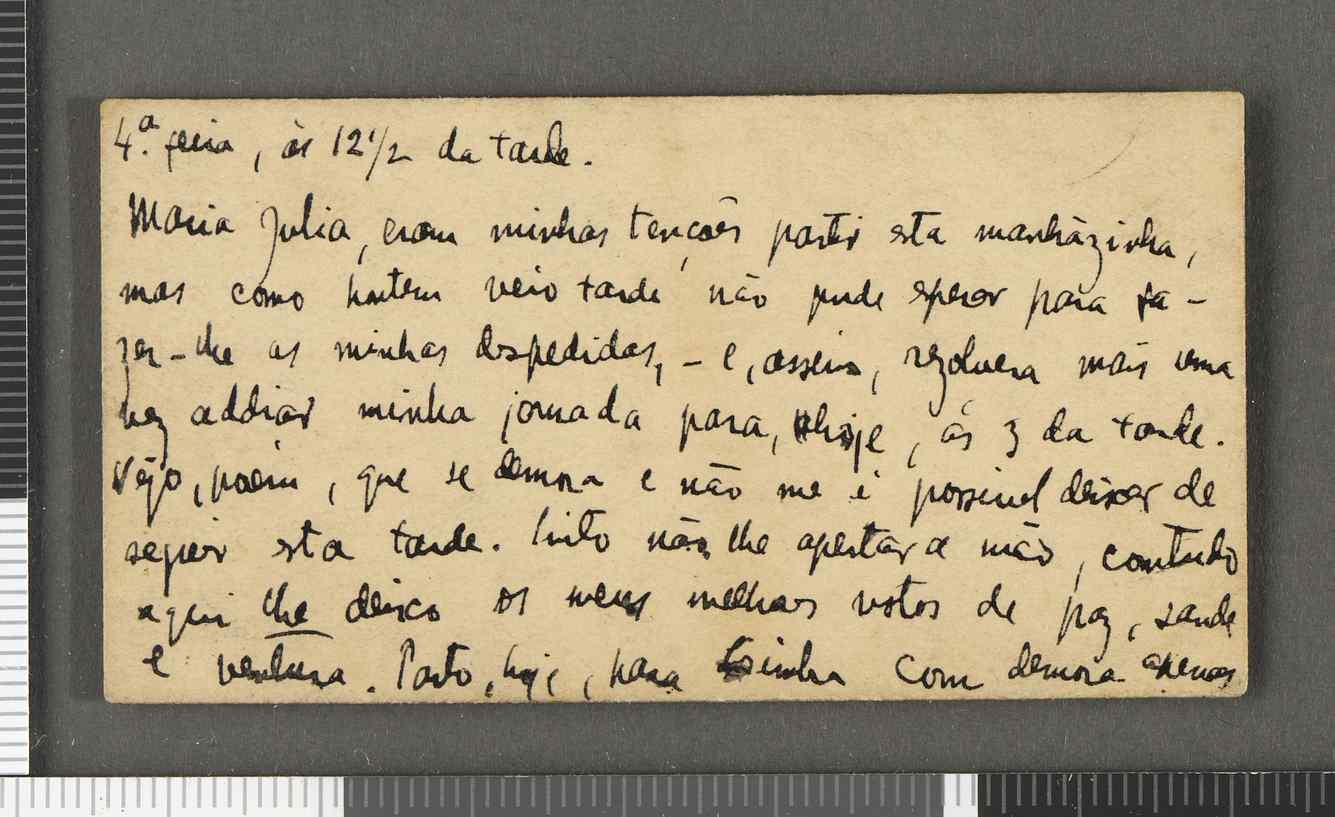 4.ª feira, ás 12 1/2 da tarde.
Maria Julia, eram minhas tenções partir esta manhãzinha,
mas como hontem veio tarde não pude esperar para fa-
zer-lhe as minhas despedidas, - e, assim, rezolvera mais uma
vez addiar minha jornada para, hoje, ás 3 da tarde.
Vejo, porém, que se demora e não me é possivel deixar de
seguir esta tarde. Sinto não lhe apertar a mão, contudo
aqui lhe deixo os meus melhores votos de paz, saude
e ventura. Parto, hoje, para com demora apenas